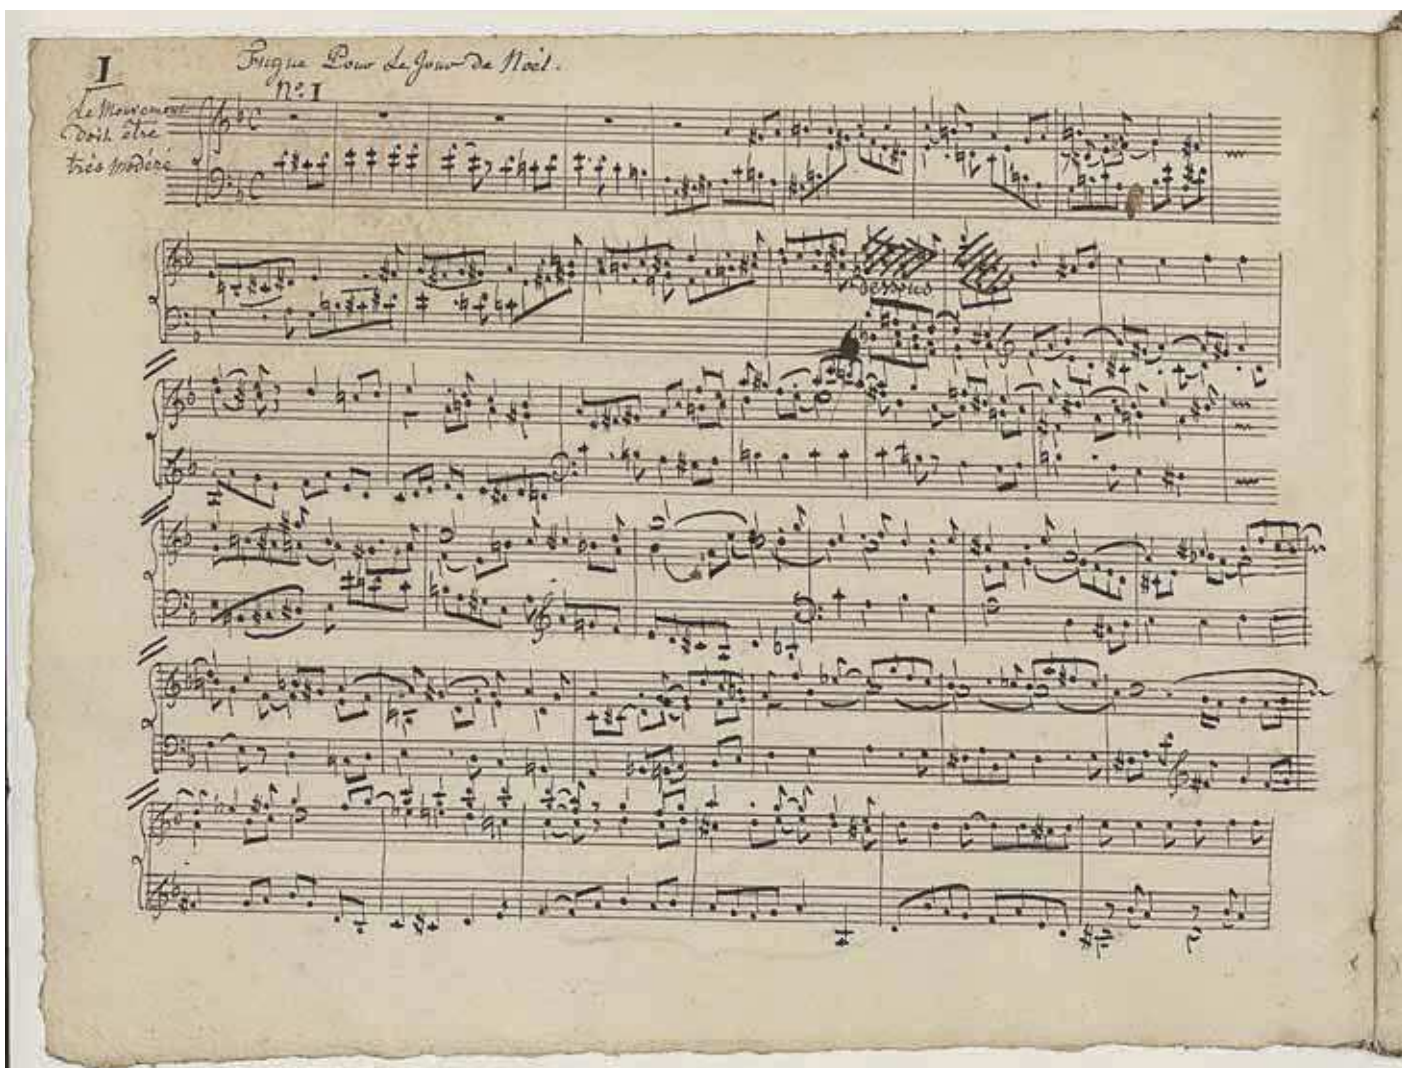 I
Fugue Pour Le Jour de Noël.
N.º I
Le Mouvement
Doit être
très modéré
dessous